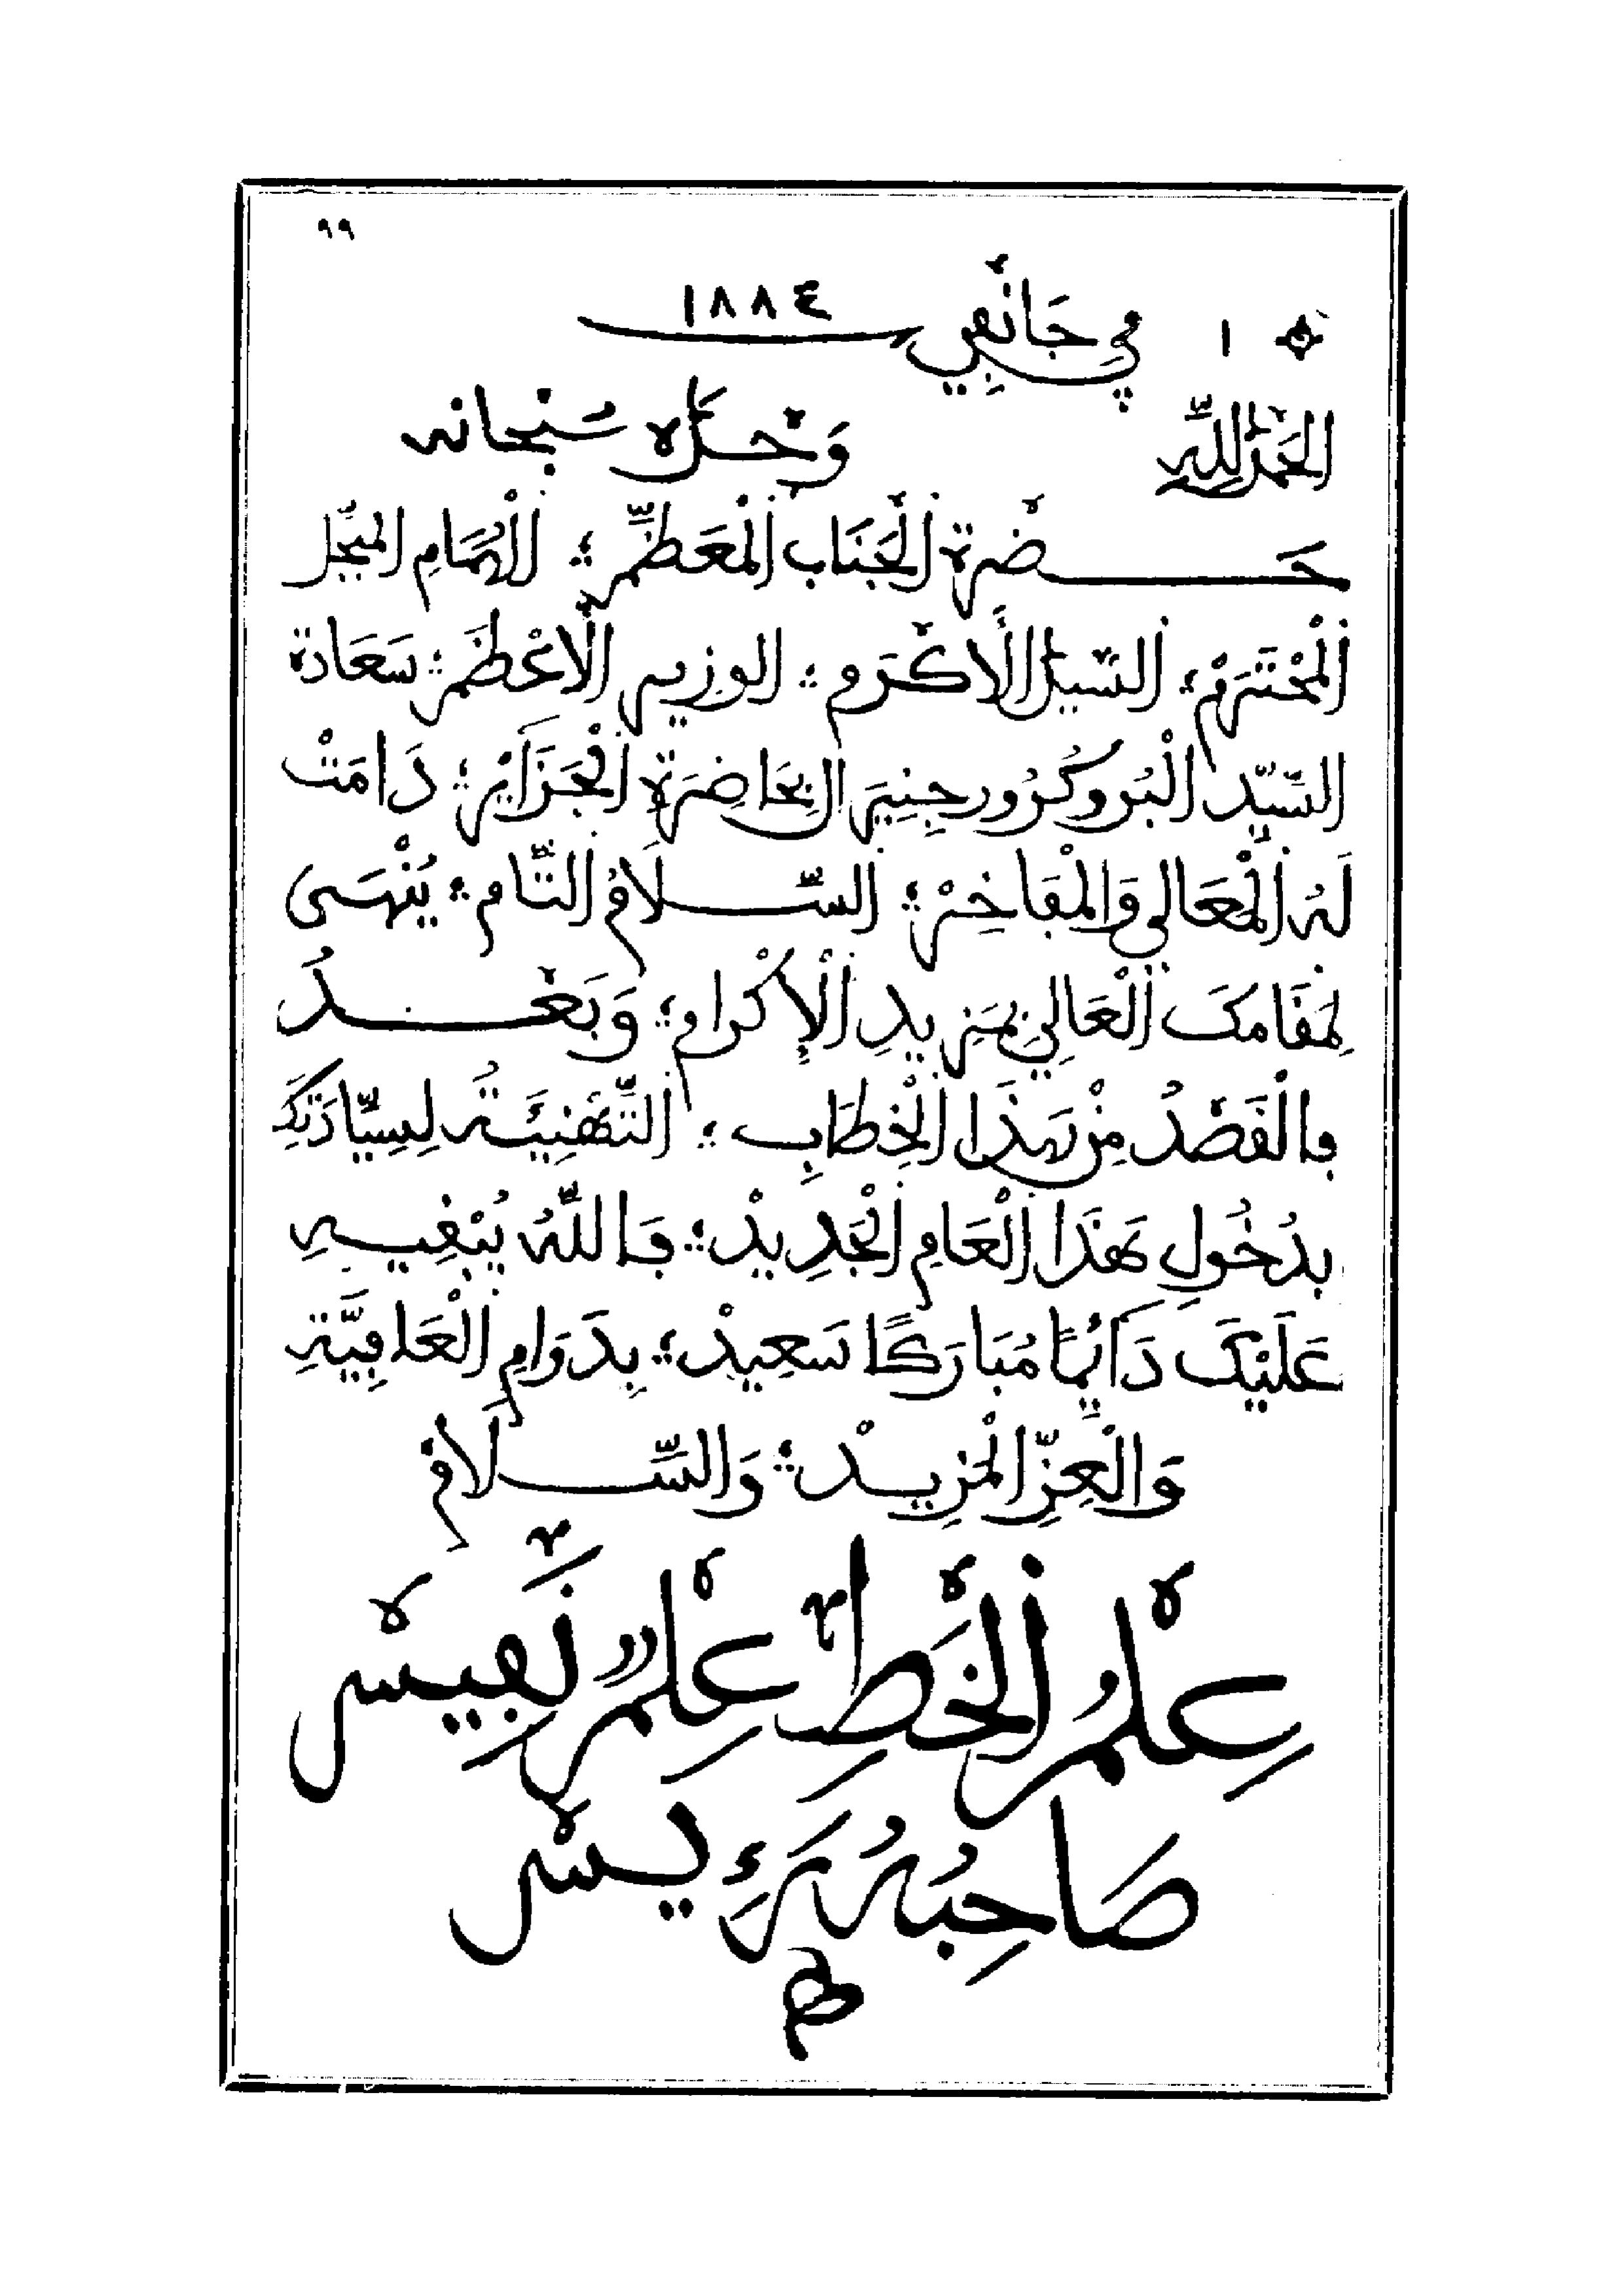 ٩٩
١ في جَانْفِي ١٨٨٤
الحَمْدُ لِلَّهِ وَحْدَهُ سُبْحَانه
حَضْرة الْجَنَاب الْمُعَظَّمِ؛ الْهُمَامِ المبجَّل
الْمُحْتَرَمْ؛ السّيدُ الْأَكْرَم؛ الوزير الْأَعْظَم؛ سَعَادة
السَّيِّد الْبُروكُرُور جِنِيرَال بِحَاضِرَةِ الْجَزَائِر؛ دَامَتْ
لَهُ الْمَعَالي وَالْمَفَاخِرْ؛ السَّلَامُ التَّام؛ يُنْهَى
لِمَقَامكَ الْعَالِي بِمَزِيدِ الْإِكْرام؛ وَبَعْدُ
فالْقَصْدُ مِنْ هَذَا الْخِطَابِ؛ التَّهْنِيَةُ لِسِيَّادَتِكَ
بِدُخُولِ هَذَا الْعَامِ الْجَدِيدْ؛ فَاللَّهُ يُبْقِيهِ
عَلَيْكَ دَائِمًا مُبَارَكًا سَعِيدْ؛ بِدَوَامِ الْعَافِيَّةِ
وَالْعِزِّ الْمَزِيدْ؛ وَالسَّلَامُ
عِلْمُ الْخَطِّ عِلْمٌ نَّفِيسْ
صَاحِبُهُ رَءِيسْ